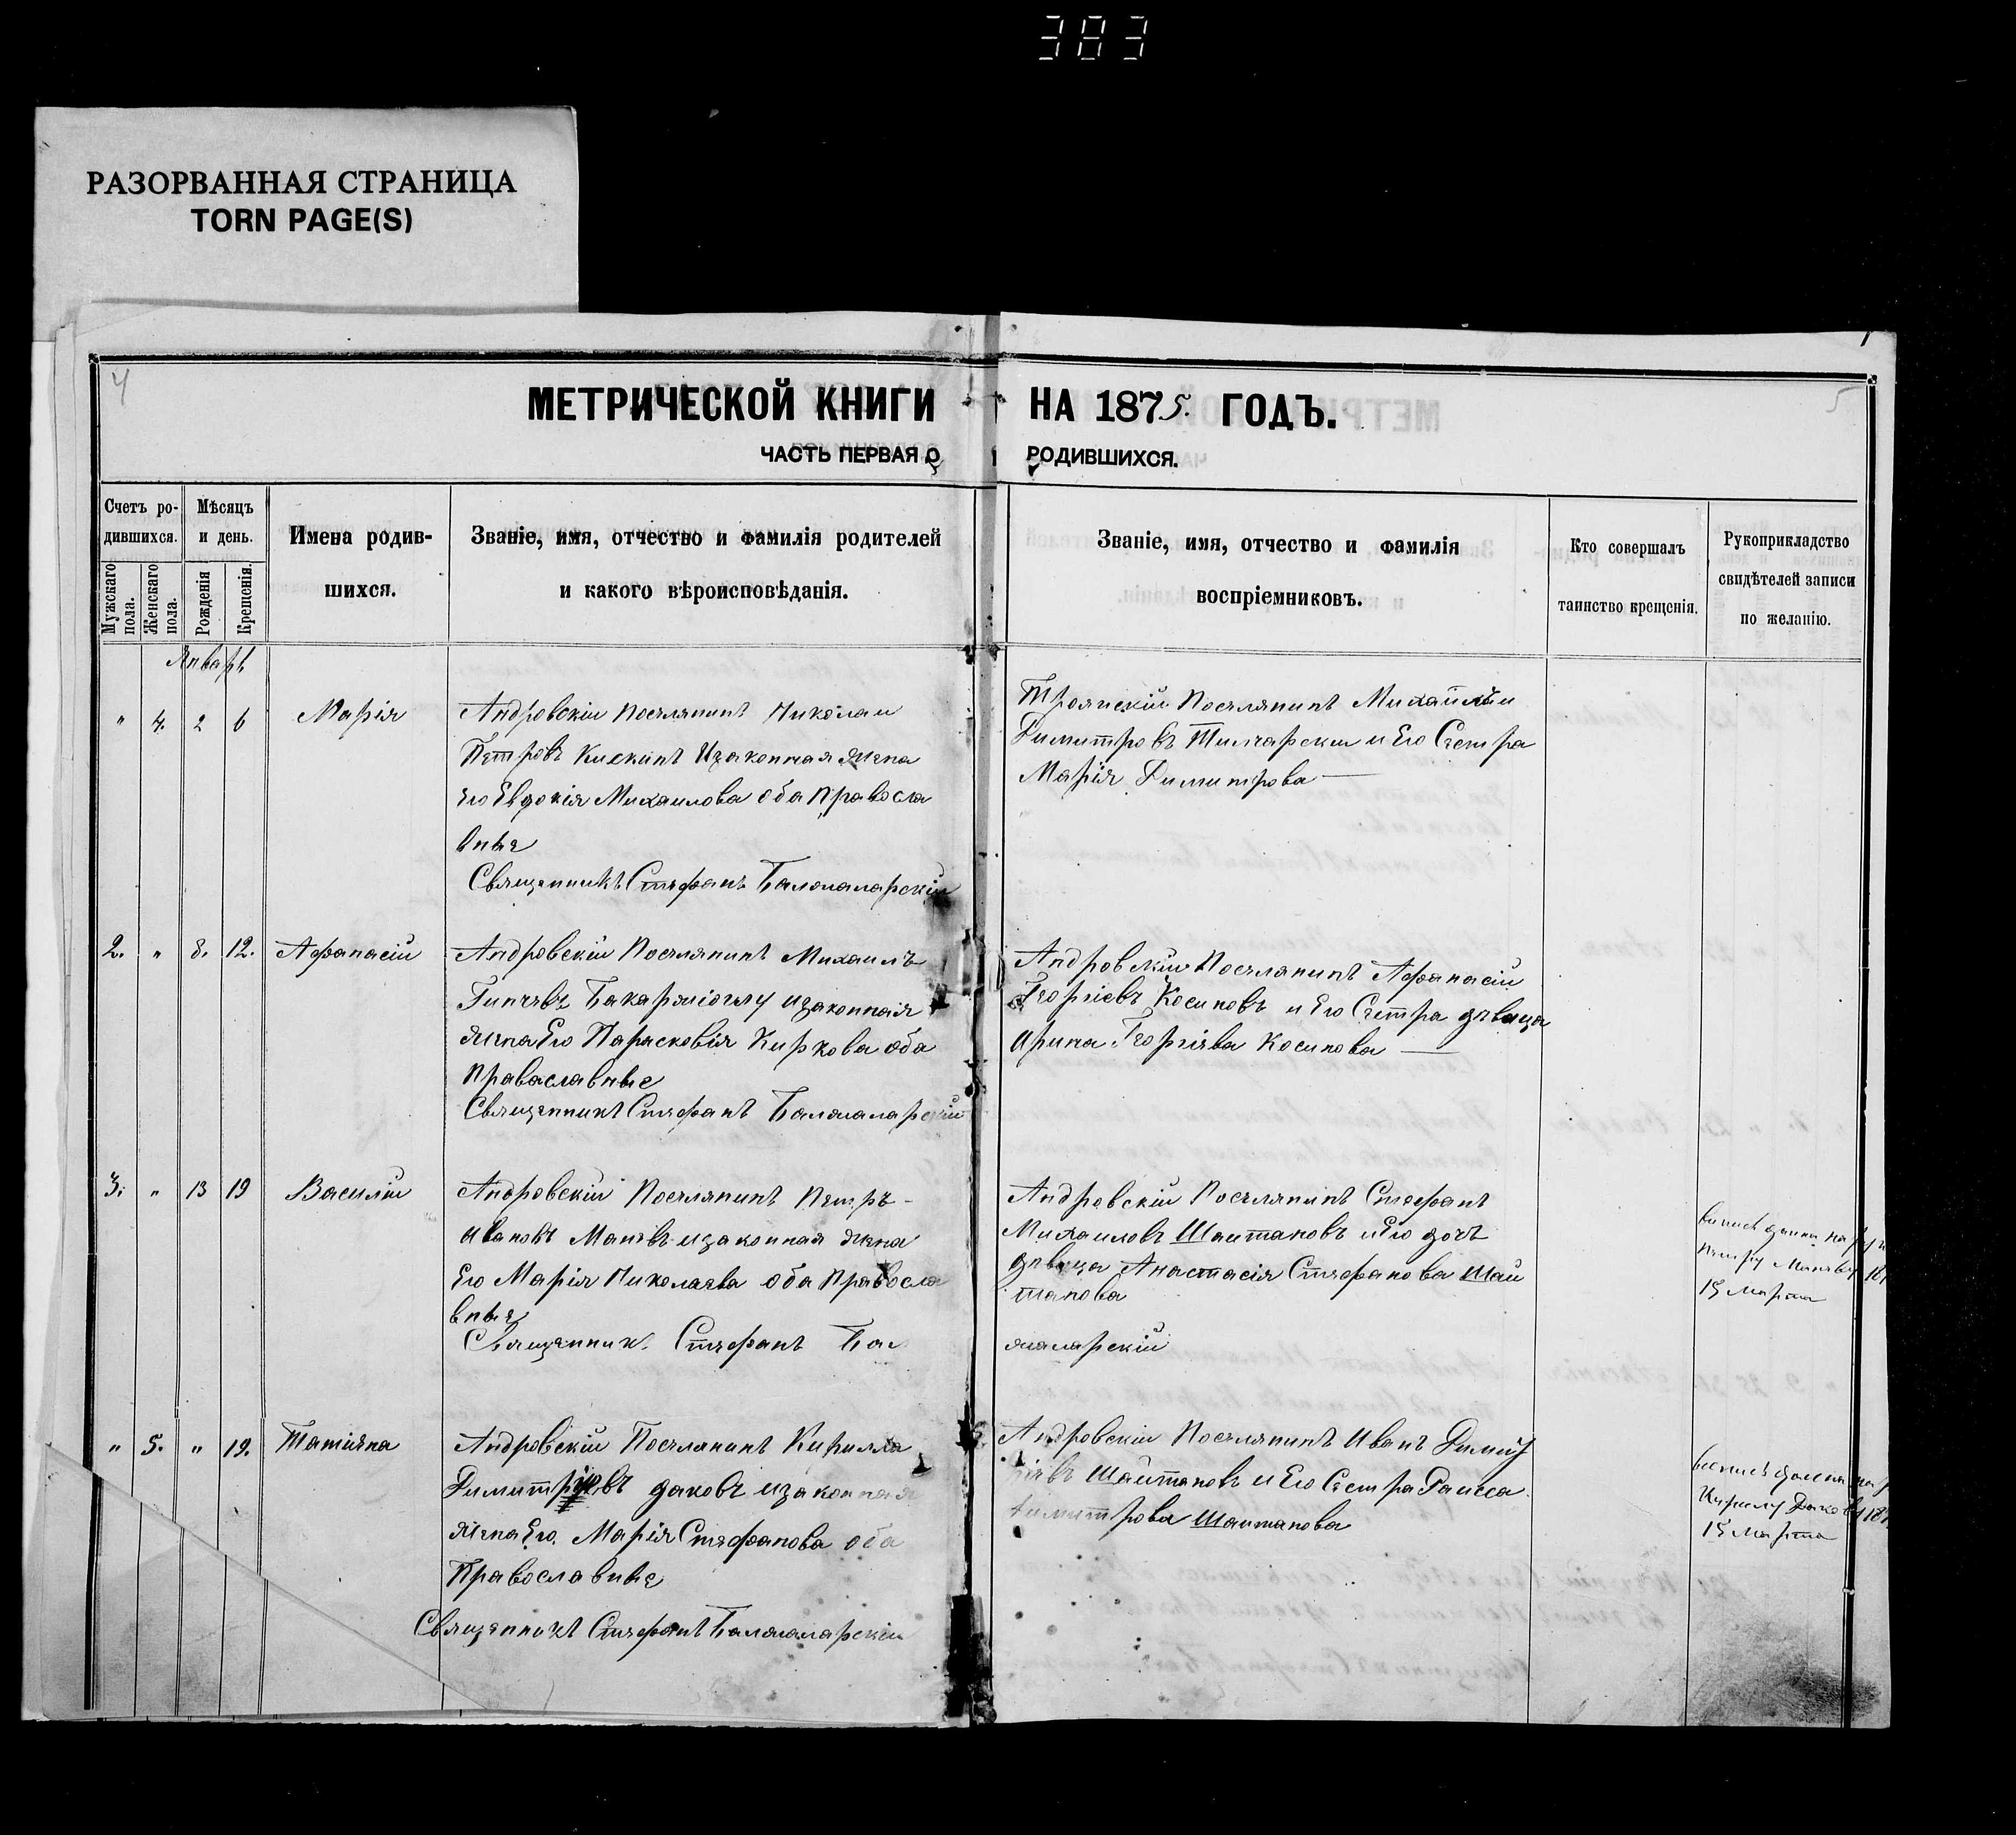 383
РАЗОРВАННАЯ СТРАНИЦА
TORN PAGE(S)
4
5
МЕТРИЧЕСКОЙ КНИГИ НА 1875. ГОДЪ.
ЧАСТЬ ПЕРВАЯ О РОДИВШИХСЯ.
Счетъ ро-
дившихся.
Мужскаго пола.
Женскаго пола.
Мѣсяцъ
и день.
Рожденія
Крещенія.
Имена родив-
шихся.
Званіе, имя, отчество и фамилія родителей
и какого вѣроисповѣданія.
Званіе, имя, отчество и фамилія
воспріемниковъ.
Кто совершалъ
таинство крещенія.
Рукоприкладство
свидѣтелей записи
по желанію.
Январь
" 4. 2 6 Марія
Андровскіи Поселянинъ Николаи
Петровъ Кискинъ Изаконная жена
его Евдокія Михаилова оба Правосла
вные
Священникъ Стефанъ Балжаларскіи
Троянскій Поселянинъ Михаилъ
Димитровъ и Его Сестра
Марія Димитрова
2. " 8. 12. Афанасій
Андровскіи Поселянинъ Михаилъ
изаконная
жена Его Парасковія Киркова оба
Православные
Священникъ Стефанъ Балжаларскій
Андровскій Поселянинъ Афанасій
Георгіевъ Косиновъ и Его Сестра дѣвица
Ирина Георгіева Косинова
3. " 13 19 Василій
Андровскій Поселянинъ Петръ
Ивановъ Маневъ изаконная жена
Его Марія Николаева оба Правосла
вные
Священник. Стефанъ Бал
жаларскій
Андровскій Поселянинъ Стефанъ
Михаиловъ Шаитановъ и Его дочъ
дѣвица Анастасія Стефанова Шаи
танова
Петру Маневу
15 Марта
" 5. " 19. Татіена
Андровскіи Поселянинъ Кирилла
Димитровъ даковъ изаконная
жена Его. Марія Стефанова оба
Православные
Священникъ Стефанъ Балжаларскіи
Андровскіи Поселянинъ Иванъ Димит
ріевъ Шаитановъ и Его Сестра Раиса
Димитрова Шаитанова
Кирилу Дакову
15 Марта